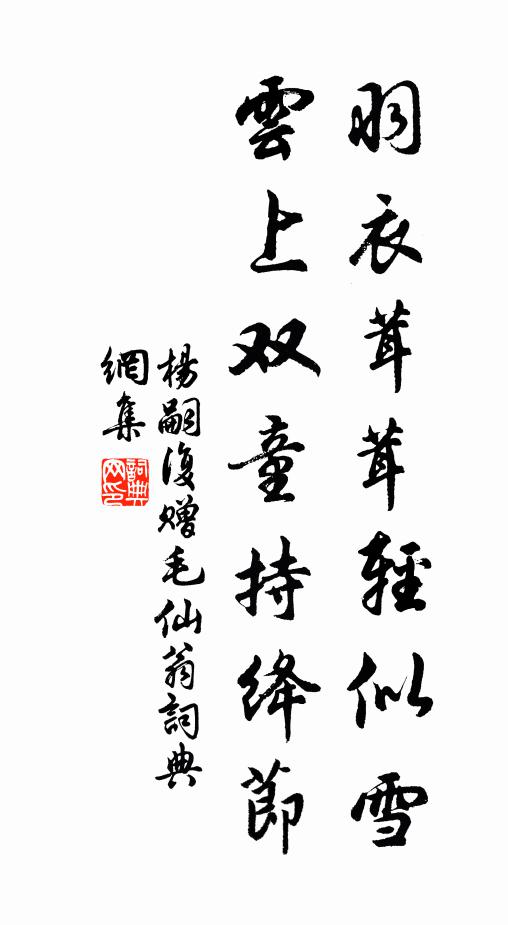 羽衣茸茸輕似雪
雲上双童持绛節
楊嗣復贈毛仙翁詞典
網集
詞典
网印